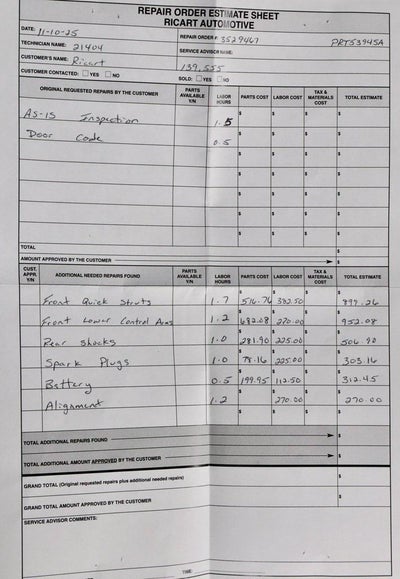 REPAIR ORDER ESTIMATE SHEET
RICART AUTOMOTIVE
DATE: 11-10-25 REPAIR ORDER # 3529467 PRT53945A
TECHNICIAN NAME: 21404 SERVICE ADVISOR NAME:
CUSTOMER'S NAME: Ricart 139,555
CUSTOMER CONTACTED: ☐ YES ☐ NO SOLD: ☐ YES ☐ NO
ORIGINAL REQUESTED REPAIRS BY THE CUSTOMER PARTS AVAILABLE Y/N LABOR HOURS PARTS COST LABOR COST TAX & MATERIALS COST TOTAL ESTIMATE
AS-IS Inspection 1.5 $ $ $ $
Door Code 0.5 $ $ $ $
$ $ $ $
$ $ $ $
$ $ $ $
$ $ $ $
$ $ $ $
TOTAL $
AMOUNT APPROVED BY THE CUSTOMER $
CUST. APPR. Y/N ADDITIONAL NEEDED REPAIRS FOUND PARTS AVAILABLE Y/N LABOR HOURS PARTS COST LABOR COST TAX & MATERIALS COST TOTAL ESTIMATE
Front Quick Struts 1.7 $ 516.76 $ 382.50 $ $ 899.26
Front Lower Control Arms 1.2 $ 682.08 $ 270.00 $ $ 952.08
Rear Shocks 1.0 $ 281.90 $ 225.00 $ $ 506.90
Spark Plugs 1.0 $ 78.16 $ 225.00 $ $ 303.16
Battery 0.5 $ 199.95 $ 112.50 $ $ 312.45
Alignment 1.2 $ $ 270.00 $ $ 270.00
TOTAL ADDITIONAL REPAIRS FOUND $
TOTAL ADDITIONAL AMOUNT APPROVED BY THE CUSTOMER $
GRAND TOTAL (Original requested repairs plus additional needed repairs) $
GRAND TOTAL AMOUNT APPROVED BY THE CUSTOMER $
SERVICE ADVISOR COMMENTS:
TIME: